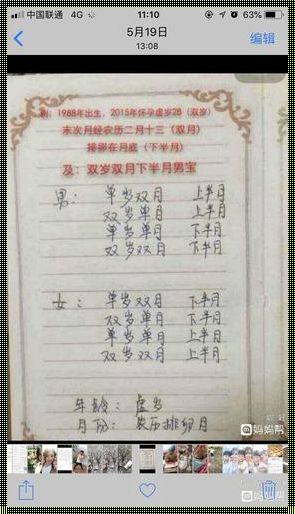 中国联通 4G 11:10 63%
5月19日
13:08
编辑
例：1988年出生，2015年怀孕虚岁28（双岁）
末次月经农历二月十三（双月）
排卵在月底（下半月）
及：双岁双月下半月男宝
男： 单岁双月 上半月
双岁单月 上半月
单岁单月 下半月
双岁双月 下半月
女： 单岁双月 下半月
双岁单月 下半月
单岁单月 上半月
双岁双月 上半月
年龄：虚岁
月份：农历排卵月
妈妈帮
妈妈帮